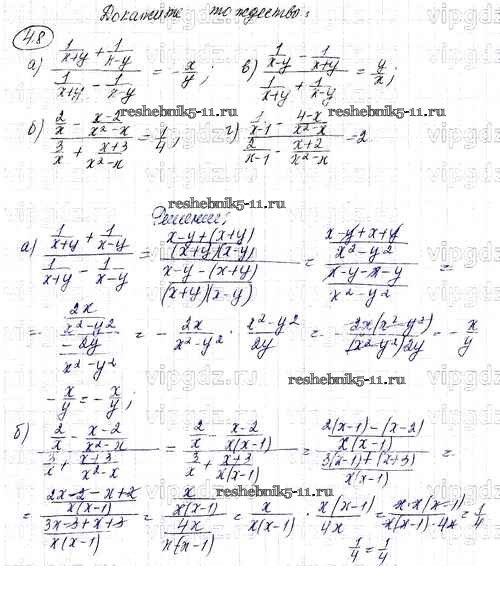 Докажите тождество:
48
а) (1/(x+y) + 1/(x-y)) / (1/(x+y) - 1/(x-y)) = -x/y; в) (1/(x-y) - 1/(x+y)) / (1/(x+y) + 1/(x-y)) = y/x;
б) (2/x - (x-2)/(x²-x)) / (3/x + (x+3)/(x²-x)) = 1/4; г) (1/(x-1) - (4-x)/(x²-x)) / (2/(x-1) - (x+2)/(x²-x)) = 2
reshebnik5-11.ru
reshebnik5-11.ru
Решение:
а) (1/(x+y) + 1/(x-y)) / (1/(x+y) - 1/(x-y)) = ((x-y+(x+y))/((x+y)(x-y))) / ((x-y-(x+y))/((x+y)(x-y))) = ((x-y+x+y)/(x²-y²)) / ((x-y-x-y)/(x²-y²)) =
= (2x/(x²-y²)) / (-2y/(x²-y²)) = - 2x/(x²-y²) · (x²-y²)/2y = - 2x(x²-y²)/((x²-y²)2y) = - x/y
reshebnik5-11.ru
- x/y = - x/y;
б) (2/x - (x-2)/(x²-x)) / (3/x + (x+3)/(x²-x)) = (2/x - (x-2)/(x(x-1))) / (3/x + (x+3)/(x(x-1))) = ((2(x-1)-(x-2))/(x(x-1))) / ((3(x-1)+(x+3))/(x(x-1))) =
reshebnik5-11.ru
= ((2x-2-x+2)/(x(x-1))) / ((3x-3+x+3)/(x(x-1))) = (x/(x(x-1))) / (4x/(x(x-1))) = x/(x(x-1)) · x(x-1)/4x = x·x(x-1)/(x(x-1)·4x) = 1/4
1/4 = 1/4
vipgdz.ru